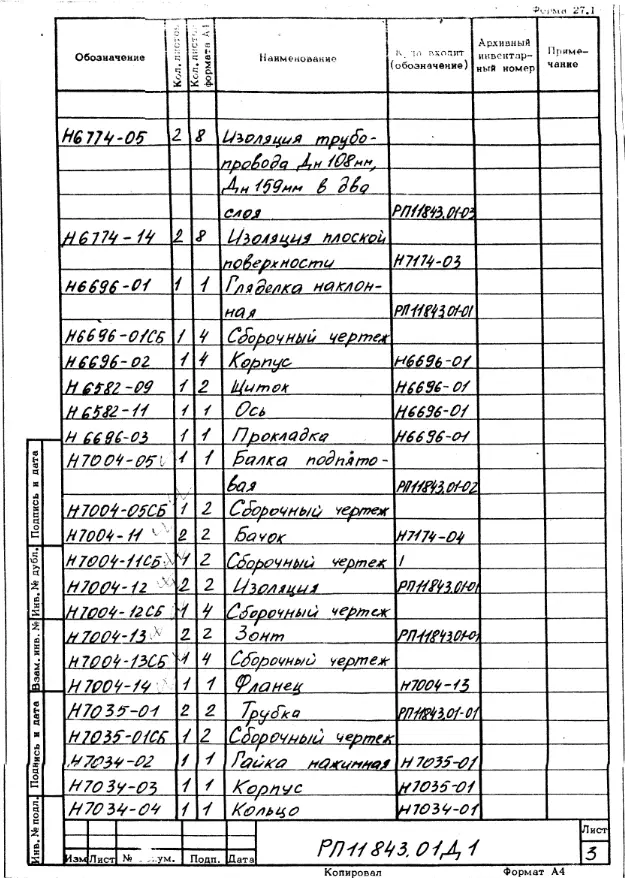 Форма 27.1
Обозначение Кол. листов Кол. листов формата А1 Наименование Куда входит (обозначение) Архивный инвентарный номер Примечание
Н6774-05 2 8 Изоляция трубо-
провода Дн 108мм,
Дн 159мм в два
слоя РП11843.01-03
Н6774-14 2 8 Изоляция плоской
поверхности Н7174-03
Н6696-01 1 1 Гляделка наклон-
ная РП11843.01-01
Н6696-01СБ 1 4 Сборочный чертеж
Н6696-02 1 4 Корпус Н6696-01
Н6582-09 1 2 Щиток Н6696-01
Н6582-11 1 1 Ось Н6696-01
Н6696-03 1 1 Прокладка Н6696-01
Н7004-05 1 1 Балка подпято-
вая РП11843.01-02
Н7004-05СБ 1 2 Сборочный чертеж
Н7004-11 2 2 Бачок Н7174-04
Н7004-11СБ 1 2 Сборочный чертеж
Н7004-12 2 2 Изоляция РП11843.01-01
Н7004-12СБ 1 4 Сборочный чертеж
Н7004-13 2 2 Зонт РП11843.01-01
Н7004-13СБ 1 4 Сборочный чертеж
Н7004-14 1 1 Фланец Н7004-13
Н7035-01 2 2 Трубка РП11843.01-01
Н7035-01СБ 1 2 Сборочный чертеж
Н7034-02 1 1 Гайка нажимная Н7035-01
Н7034-03 1 1 Корпус Н7035-01
Н7034-04 1 1 Кольцо Н7034-01
Инв. № подл. Подпись и дата Взам. инв. № Инв. № дубл. Подпись и дата
Изм Лист № ум. Подп. Дата
РП11843.01Д1
Лист
3
Копировал Формат А4